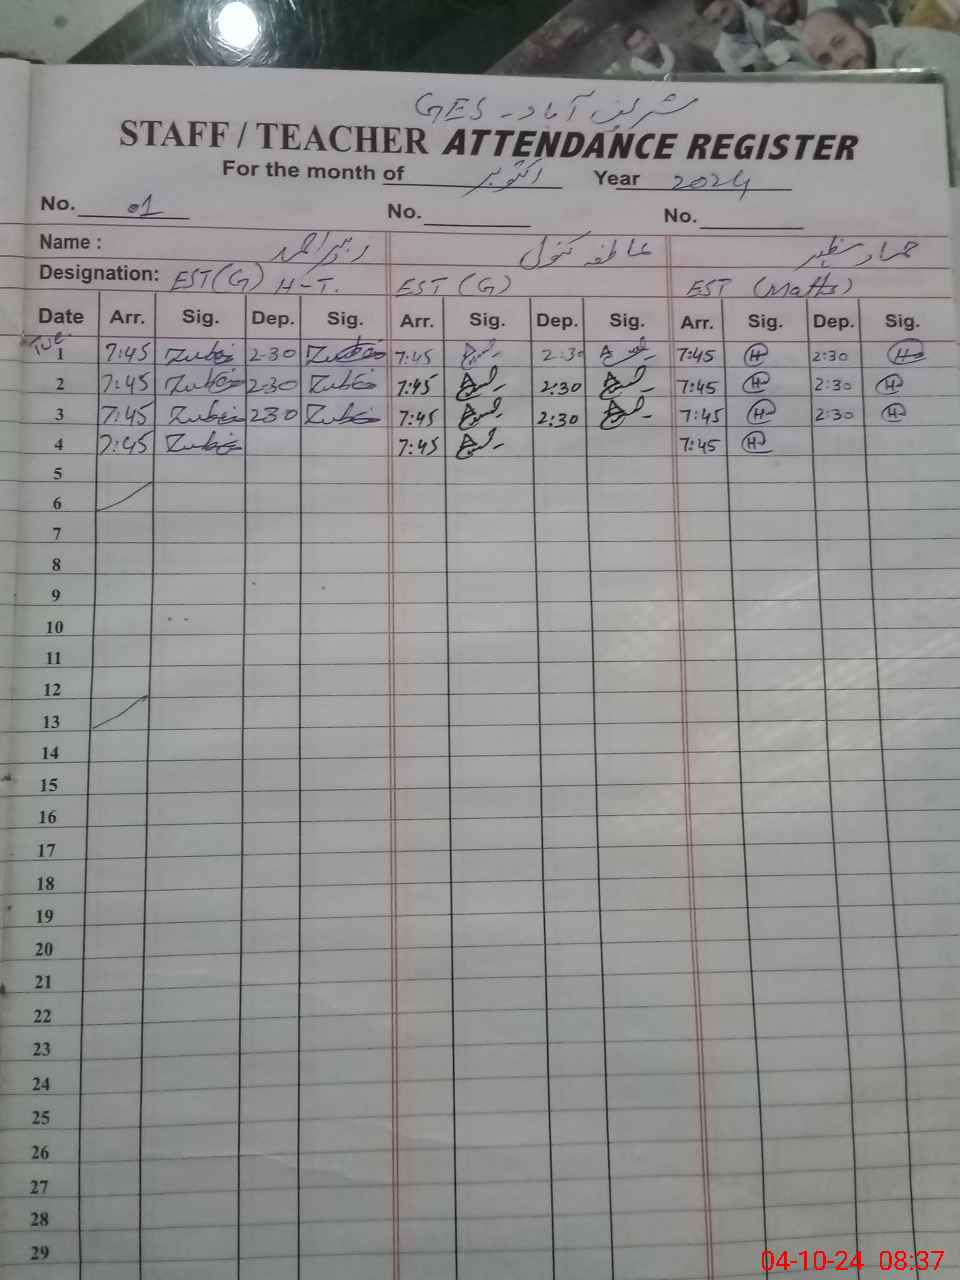 GES - شریف آباد
STAFF / TEACHER ATTENDANCE REGISTER
For the month of اکتوبر Year 2024
No. 01 No. No.
Name : زبیر احمد عاطفہ کنول حماد
Designation: EST (G) H-T. EST (G) EST (Maths)
Date Arr. Sig. Dep. Sig. Arr. Sig. Dep. Sig. Arr. Sig. Dep. Sig.
Tue.
1 7:45 2-30 7:45 2:30 7:45 H 2:30 H
2 7:45 2-30 7:45 2:30 7:45 H 2:30 H
3 7:45 230 7:45 2:30 7:45 H 2:30 H
4 7:45 7:45 7:45 H
5
6
7
8
9
10
11
12
13
14
15
16
17
18
19
20
21
22
23
24
25
26
27
28
29
04-10-24 08:37